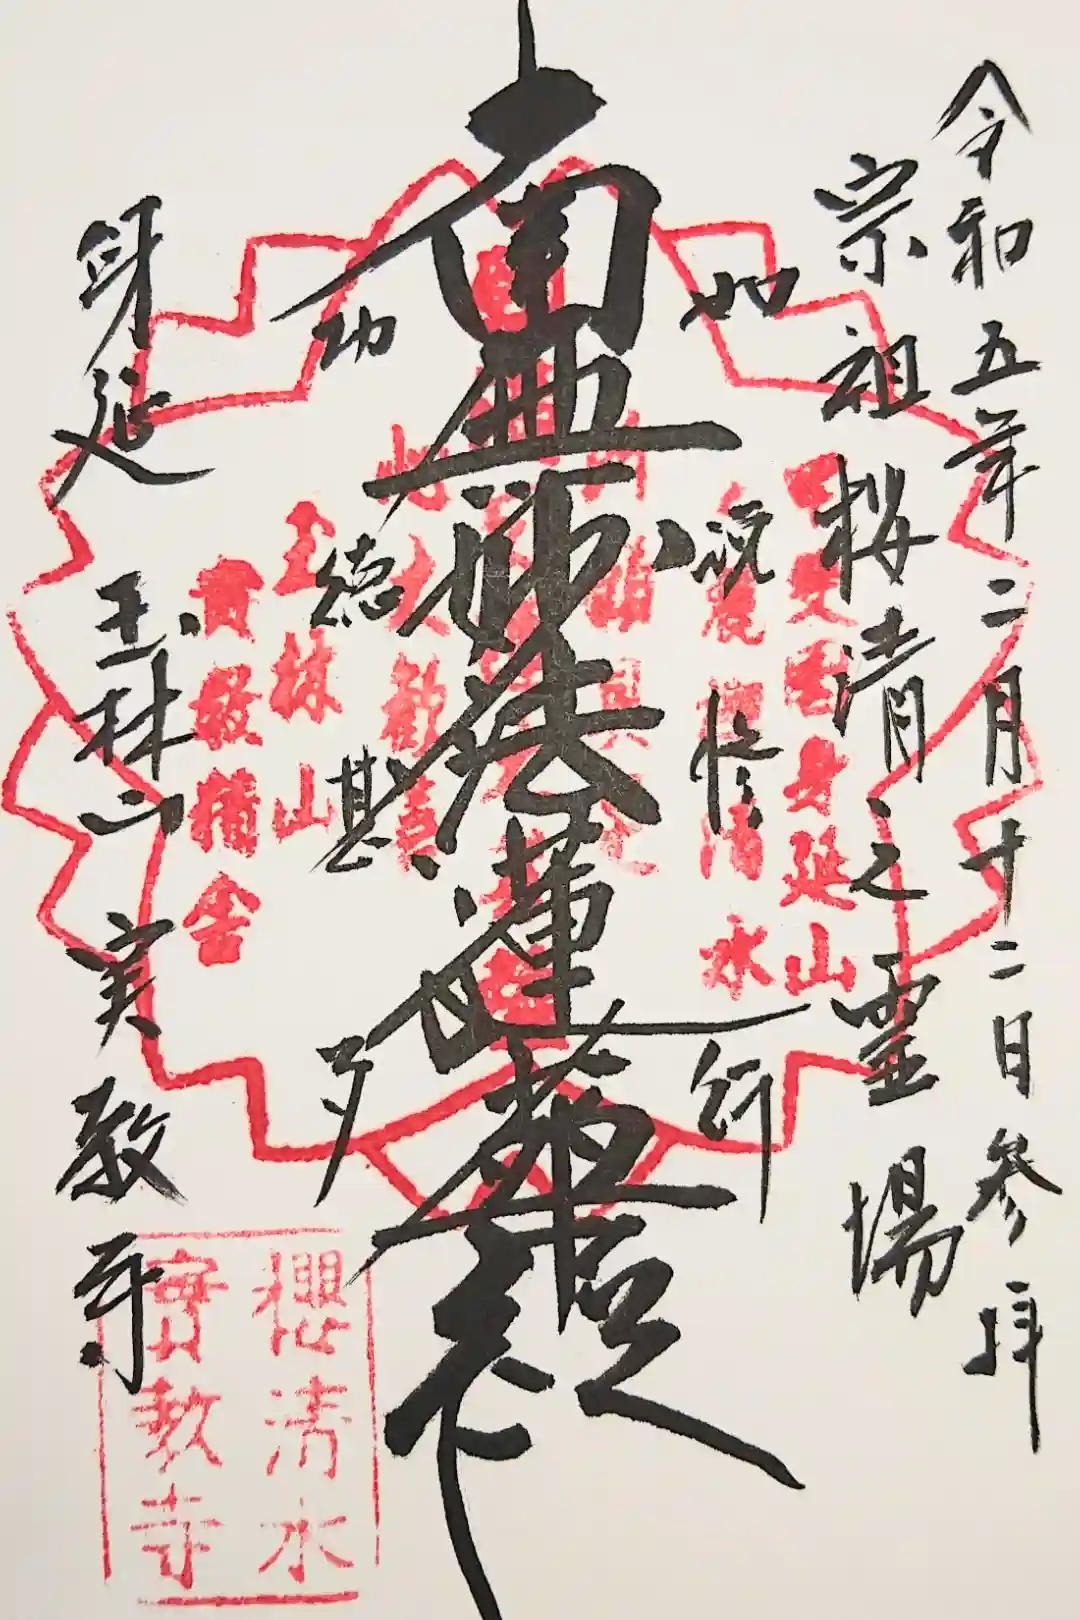 令和五年二月十二日参拝
宗祖桜清水之霊場
如説修行
南無妙法蓮華経
功徳甚多
身延
玉林山実教寺
甲斐国身延山
清水
玉林山
實教精舎
櫻清水
實教寺